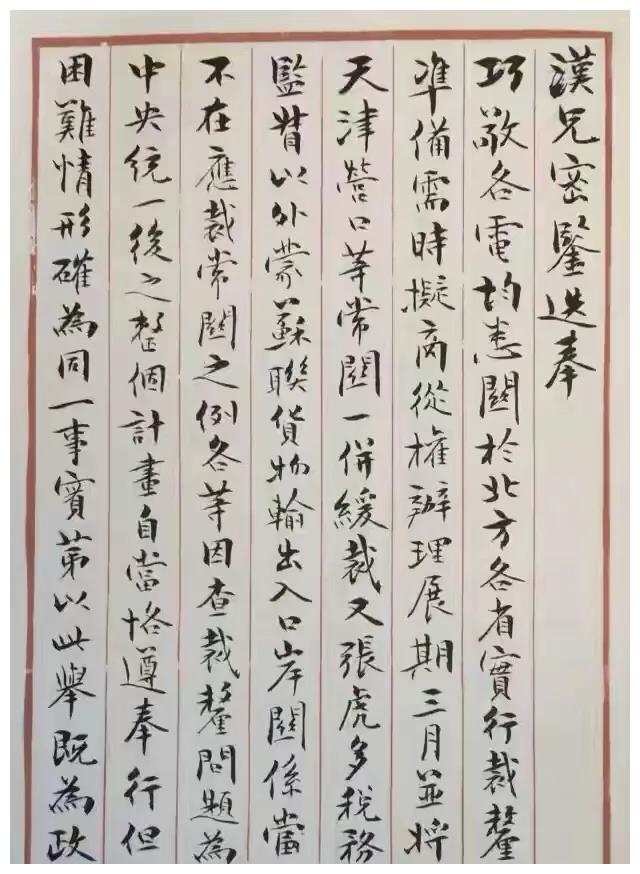 漢兄密鑒迭奉
巧敬各電均悉關於北方各省實行裁釐
準備需時擬商從權辦理展期三月並將
天津營口等常關一併緩裁又張虎多稅務
監督以外蒙蘇聯貨物輸出入口岸關係當
不在應裁常關之例各等因查裁釐問題為
中央統一後之整個計畫自當恪遵奉行但
困難情形確為同一事實第以此舉既為政